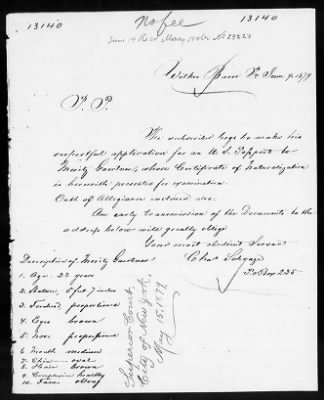 13140
no fee
13140
June 14 Recd Money order No 29224
Wilkes Barre Pa June 9. 1879
The undersigned begs to make his
respectful application for an U.S. Passport to
Moritz Gardner, whose Certificate of Naturalization
is herewith presented for examination.
Oath of Allegiance enclosed also.
An early transmission of the Documents to the
address below will greatly oblige
Your most obedient Servant
P.O. Box 235
Description of Moritz Gardner
1. Age. 22 years
2. Stature, 5 feet 7 inches
3. Forehead, proportioned
4. Eyes brown
5. Nose proportioned
6. Mouth medium
7. Chin oval
8. Hair brown
9. Complexion healthy
10. Face oblong
Superior Court,
City of New York,
May 15, 1879